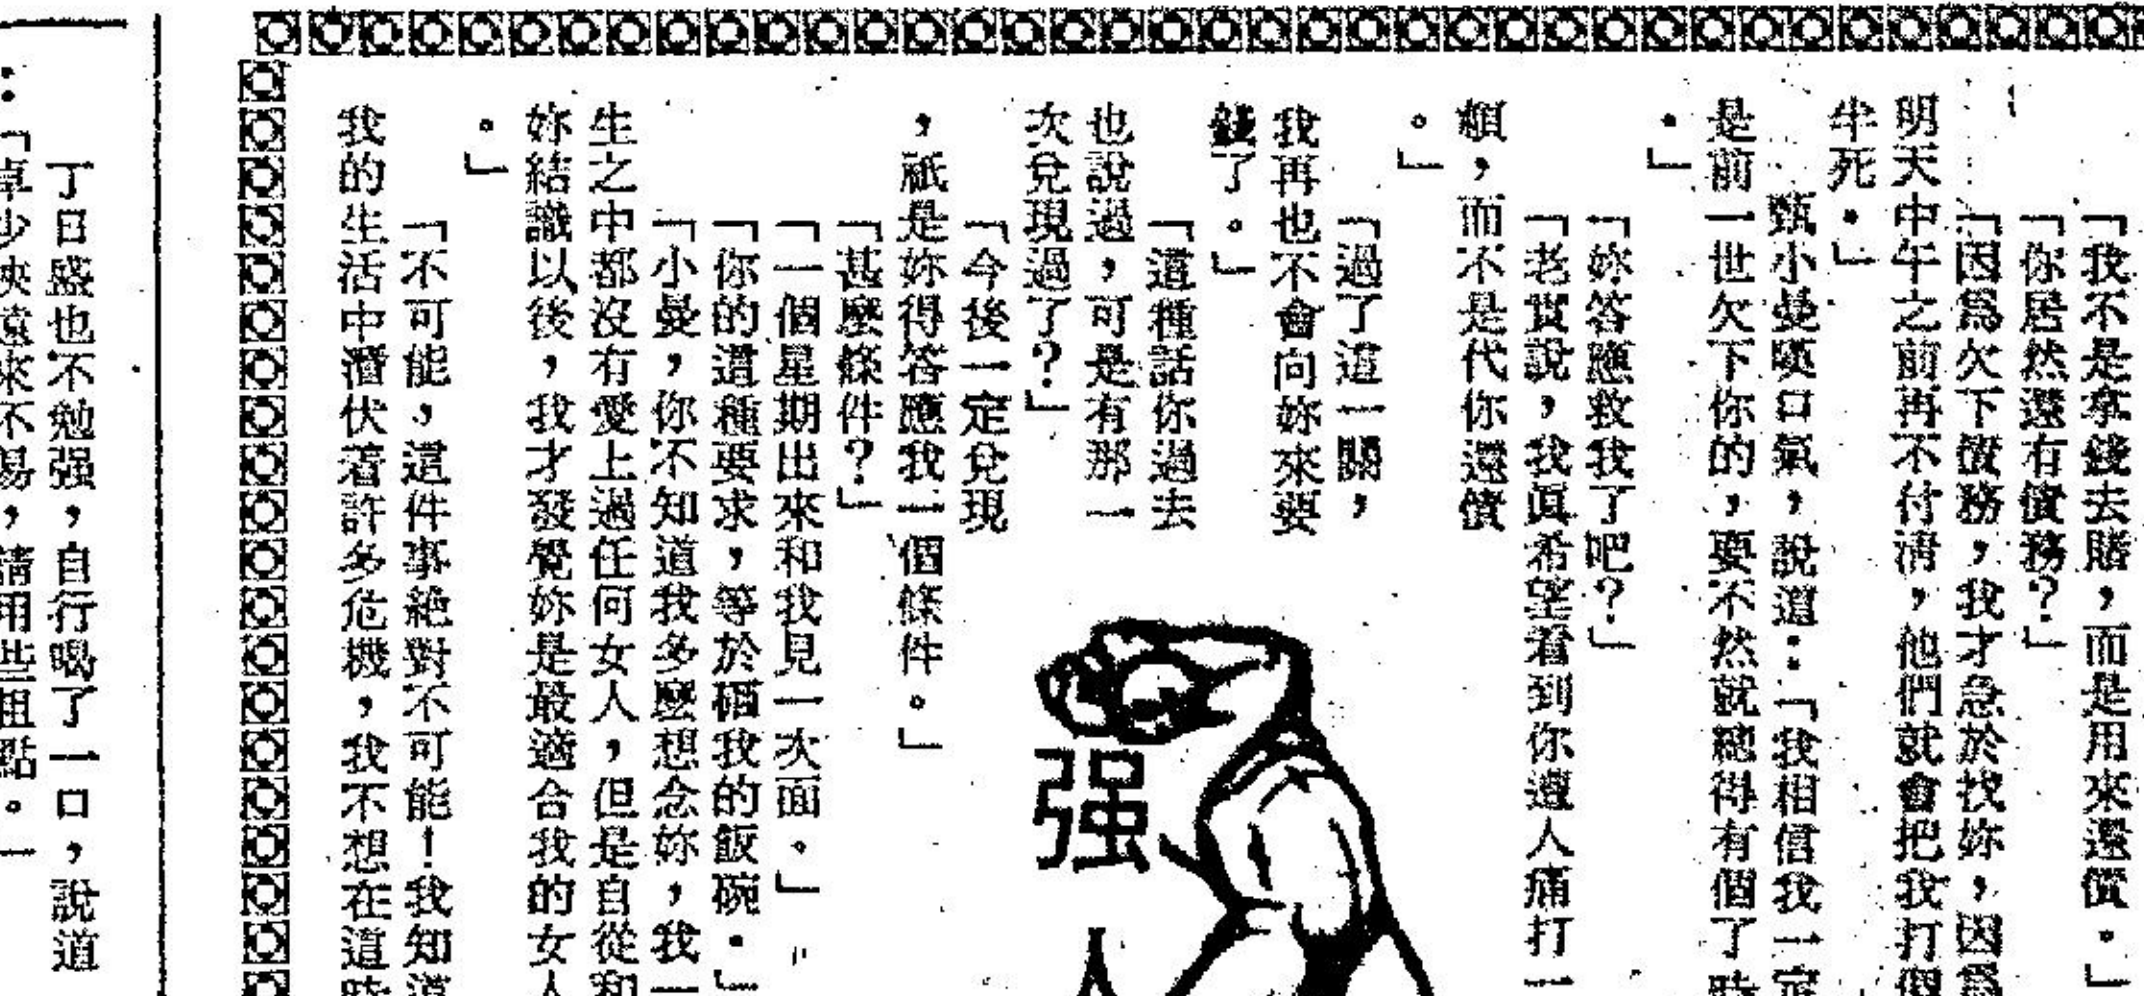 「我不是拿錢去賭，而是用來還債。」
「你居然還有債務？」
「因爲欠下債務，我才急於找妳，因爲
明天中午之前再不付清，他們就會把我打個
半死。」
甄小曼嘆口氣，說道：「我相信我一定
是前一世欠下你的，要不然就總得有個了時
。」
「妳答應救我了吧？」
「老實說，我眞希望看到你遭人痛打一
頓，而不是代你還債
。」
「過了這一關，
我再也不會向妳來要
錢了。」
「這種話你過去
也說過，可是有那一
次兌現過了？」
「今後一定兌現
，祇是妳得答應我一個條件。」
「甚麼條件？」
「一個星期出來和我見一次面。」
「你的這種要求，等於砸我的飯碗。」
「小曼，你不知道我多麼想念妳，我一
生之中都沒有愛上過任何女人，但是自從和
妳結識以後，我才發覺妳是最適合我的女人
。」
「不可能，這件事絕對不可能！我知道
我的生活中潛伏着許多危機，我不想在這時
强人
丁日盛也不勉强，自行喝了一口，說道
：「卓少俠遠來不易，請用些粗點。」